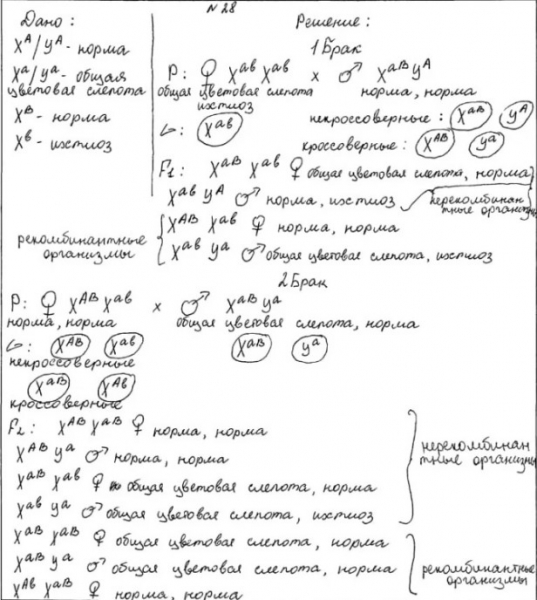 N 28
Дано:
X^A/y^A - норма
X^a/y^a - общая
цветовая слепота
X^B - норма
X^в - ихтиоз
Решение:
1 Брак
P: ♀ X^aв X^aв × ♂ X^aB y^A
общая цветовая слепота норма, норма
ихтиоз
G: X^aв
некроссоверные: X^aB y^A
кроссоверные: X^AB y^a
F1: X^aB X^aв ♀ общая цветовая слепота, норма
X^aв y^A ♂ норма, ихтиоз
нерекомбинан
тные организмы
рекомбинантные
организмы
X^AB X^aв ♀ норма, норма
X^aв y^a ♂ общая цветовая слепота, ихтиоз
2 Брак
P: ♀ X^AB X^aв × ♂ X^aB y^a
норма, норма общая цветовая слепота, норма
G: X^AB X^aв X^aB y^a
некроссоверные
X^aB X^Aв
кроссоверные
F2: X^AB X^aB ♀ норма, норма
X^AB y^a ♂ норма, норма
X^aB X^aв ♀ общая цветовая слепота, норма
X^aв y^a ♂ общая цветовая слепота, ихтиоз
нерекомбинан
тные организмы
X^aB X^aB ♀ общая цветовая слепота, норма
X^aB y^a ♂ общая цветовая слепота, норма
X^Aв X^aB ♀ норма, норма
рекомбинантные
организмы